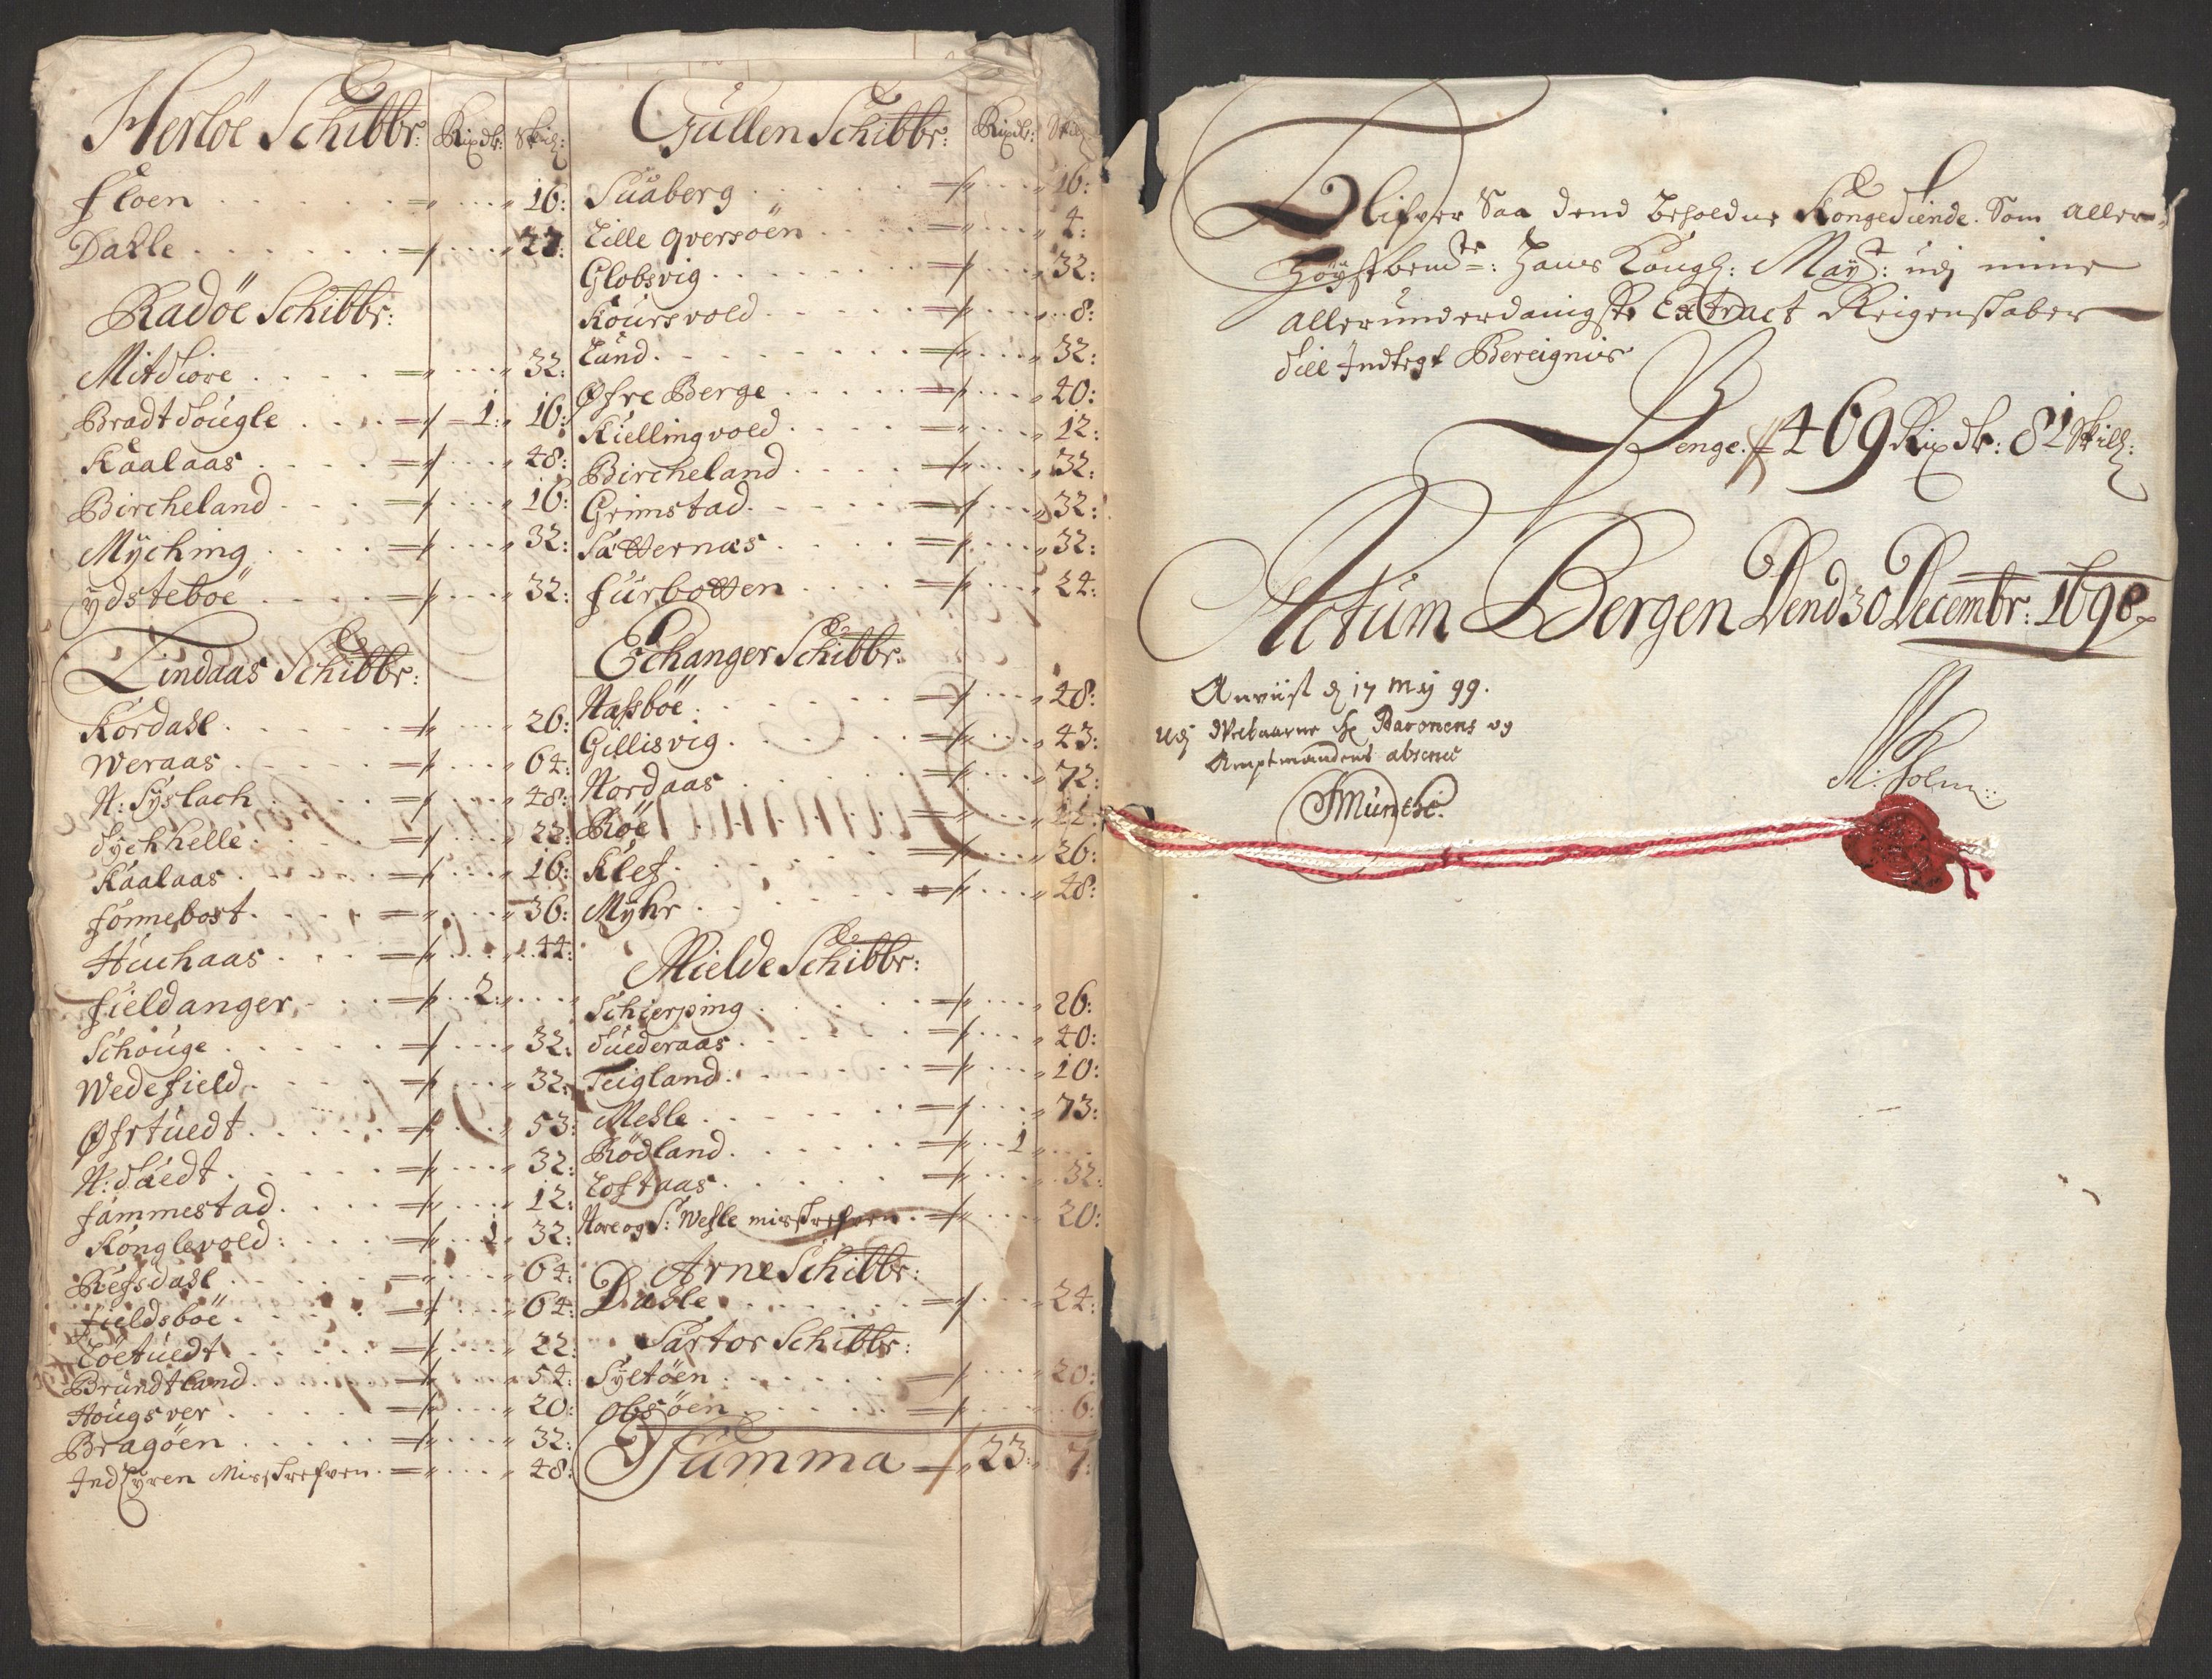 Herlöe Schibbr: Rixdr: Skilh:
Floen 16:
Dahle 27:
Radöe Schibbr:
Mitdiore 32:
Bradtdougle 1: 16:
Kaalaas 48:
Bircheland 16:
Myching 32:
ydsteböe 32:
Lindaas Schibbr:
Kordahl 26:
Weraas 64:
N: Syslach 48:
Kaalaas 16:
Fonnebost 36:
Huchaas 44:
Fieldanger 2:
Schouge 32:
Wedefield 32:
Øfrtuedt 53:
N: tuedt 32:
Fammestad 12:
Konglevold 1 32:
Refsdahl 64:
Fieldsböe 64:
Löetuedt 22:
Brundtland 54:
Hougsver 20:
Bragöen 32:
Indhyren Misskrefven 48:
Gullen Schibbr: Rixdr: Skilh
Suaberg 16:
Lille Qversöen 4:
Globsvig 32:
Koursvold 8:
Lund 32:
Øfre Berge 40:
Kiellingvold 12:
Bircheland 32:
Grimstad 32:
Sætternæs 32:
Furbotten 24:
Echanger Schibbr:
Nassböe 48:
Gillisvig 43:
Nordaas 72:
Röe
Klef 26:
Myhr 48:
Mielde Schibbr:
Schierping 26:
Tuederaas 40:
Teigland 10:
Mehle 73:
Rödland 1
Loftaas 32:
Nore og S: Wefle misskrefven 20:
Arne Schibbr:
Dahle 24:
Sartor Schibbr:
Syltöen 20:
Obsöen 6:
Summa 23: 7:
Blifver Saa dend beholdne Kongetiende. Som aller-
höystbemte: Hans Kongl: Mayt: udj mine
allerunderdanigste Extract Reigenskaber
till Indtegt Bereignis
Penge 469 Rixdr: 81 Skilh:
Actum Bergen Dend 30 Decembr: 1698
Anviist d 17 Maij 99.
Udj Welbaarne hr Baronens og
Amptmandens absence
JMünthe.